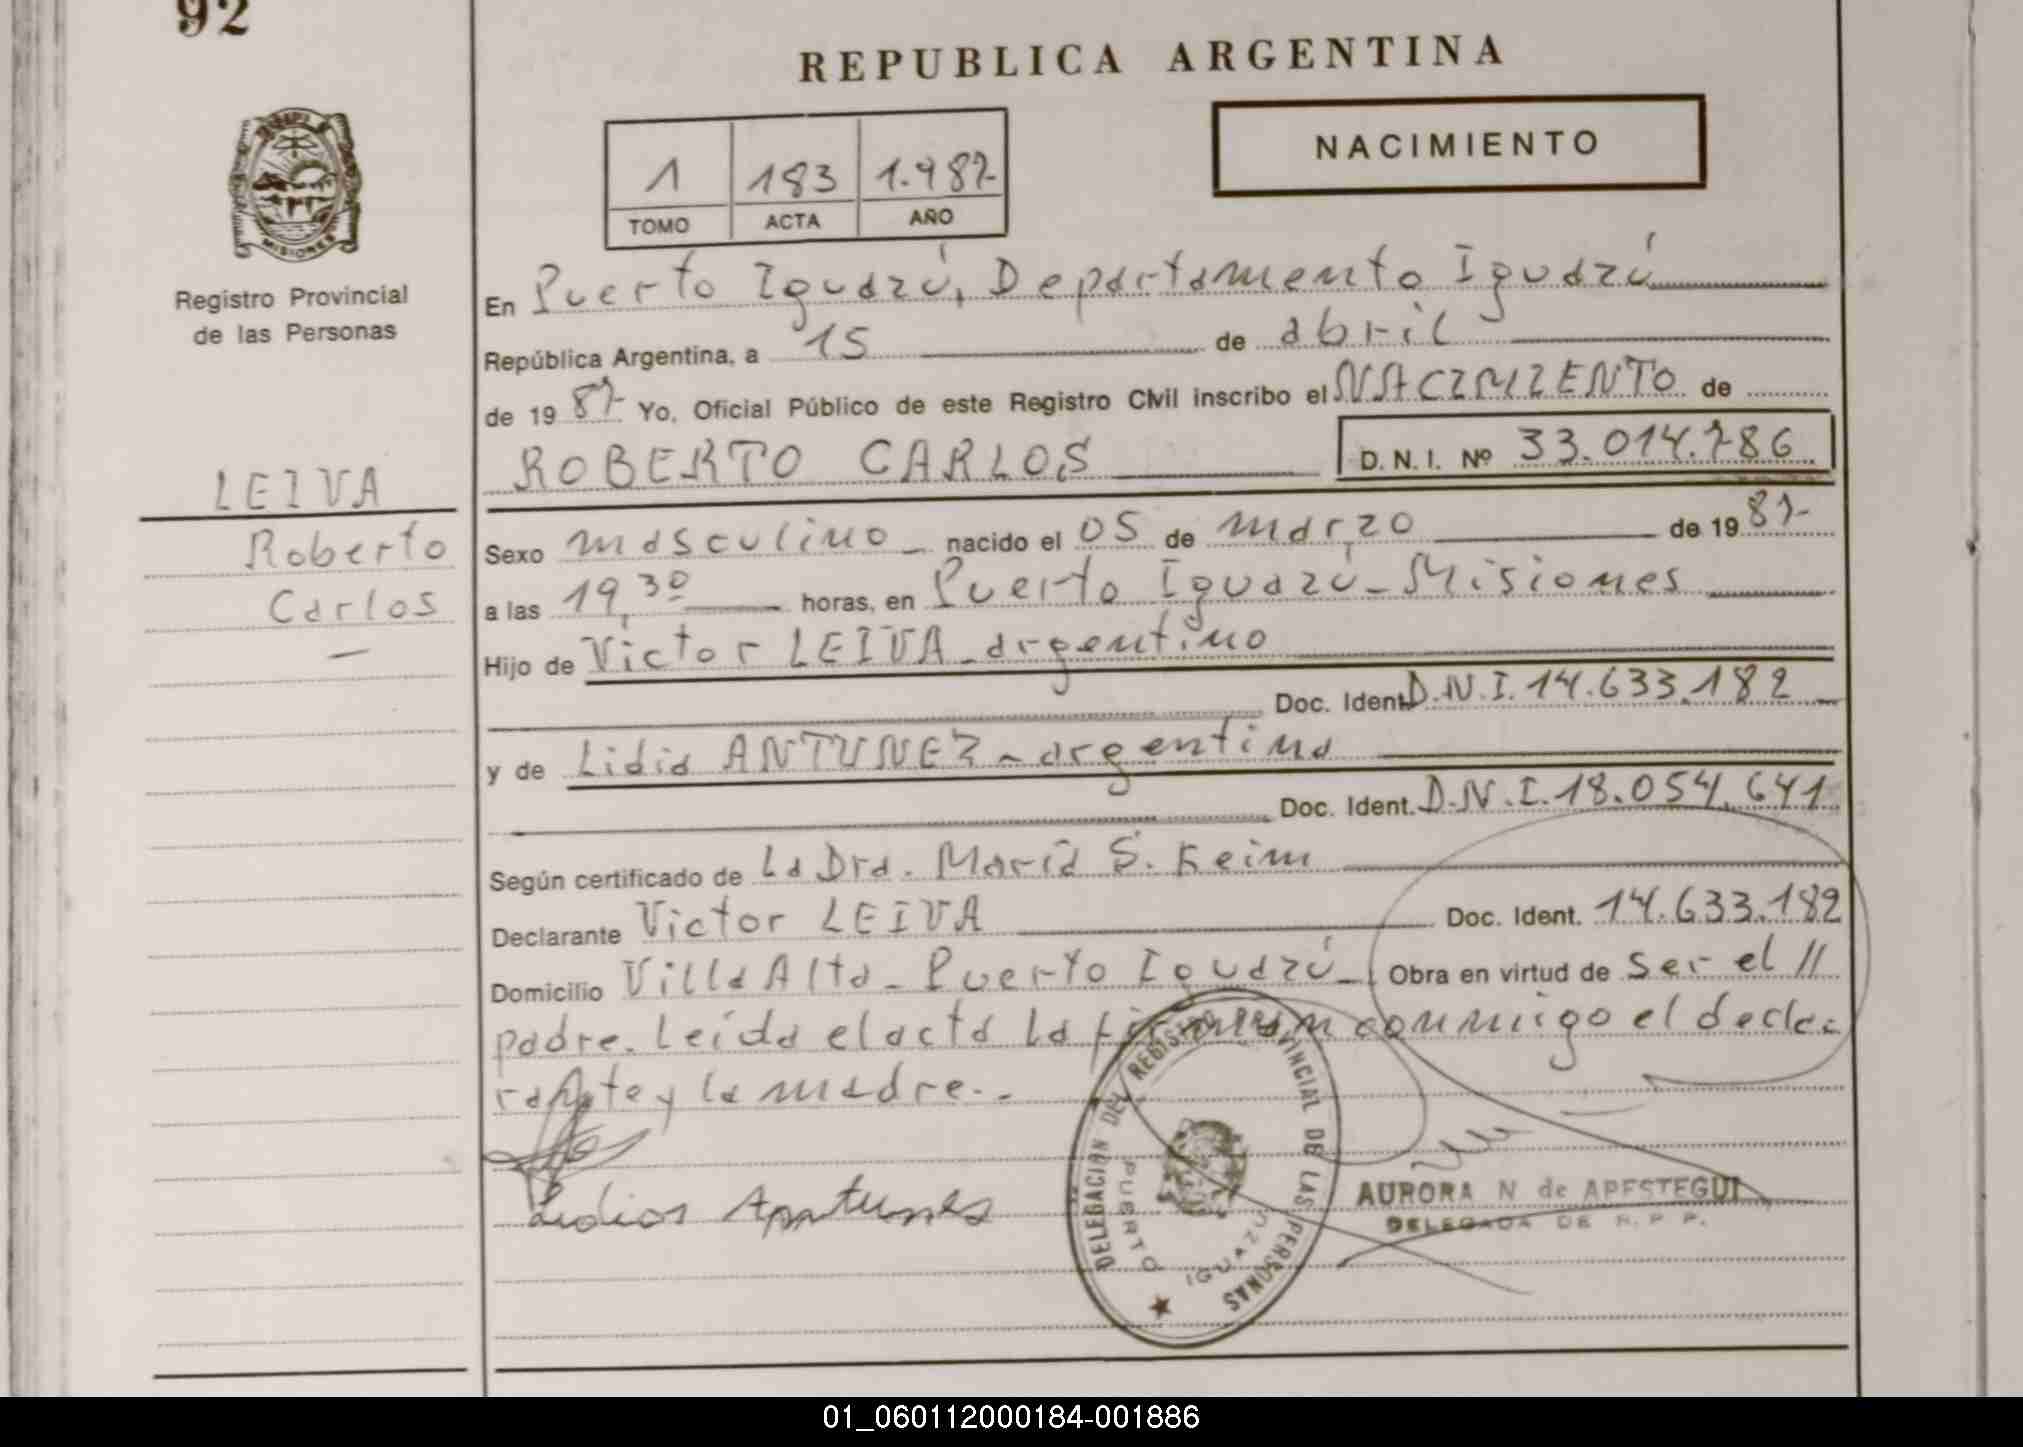 92
REPUBLICA ARGENTINA
NACIMIENTO
1 183 1.987
TOMO ACTA AÑO
MISIONES
Registro Provincial
de las Personas
En Puerto Iguazú, Departamento Iguazú
República Argentina, a 15 de abril
de 1987 Yo, Oficial Público de este Registro Civil inscribo el NACIMIENTO de
ROBERTO CARLOS D.N.I. Nº 33.014.786
LEIVA
Roberto
Carlos
Sexo masculino nacido el 05 de marzo de 1987
a las 19,30 horas, en Puerto Iguazú - Misiones
Hijo de Victor LEIVA - argentino
Doc. Ident. D.N.I. 14.633.182
y de Lidia ANTUNEZ - argentina
Doc. Ident. D.N.I. 18.054.641
Según certificado de La Dra. María S. Keim
Declarante Victor LEIVA Doc. Ident. 14.633.182
Domicilio Villa Alta - Puerto Iguazú - Obra en virtud de ser el //
padre. Leída el acta la firman conmigo el decla-
rante y la madre.-
DELEGACIÓN DEL REGISTRO PROVINCIAL DE LAS PERSONAS
PUERTO IGUAZU
AURORA N de APESTEGUI
DELEGADA DE R. P. P.
01_060112000184-001886